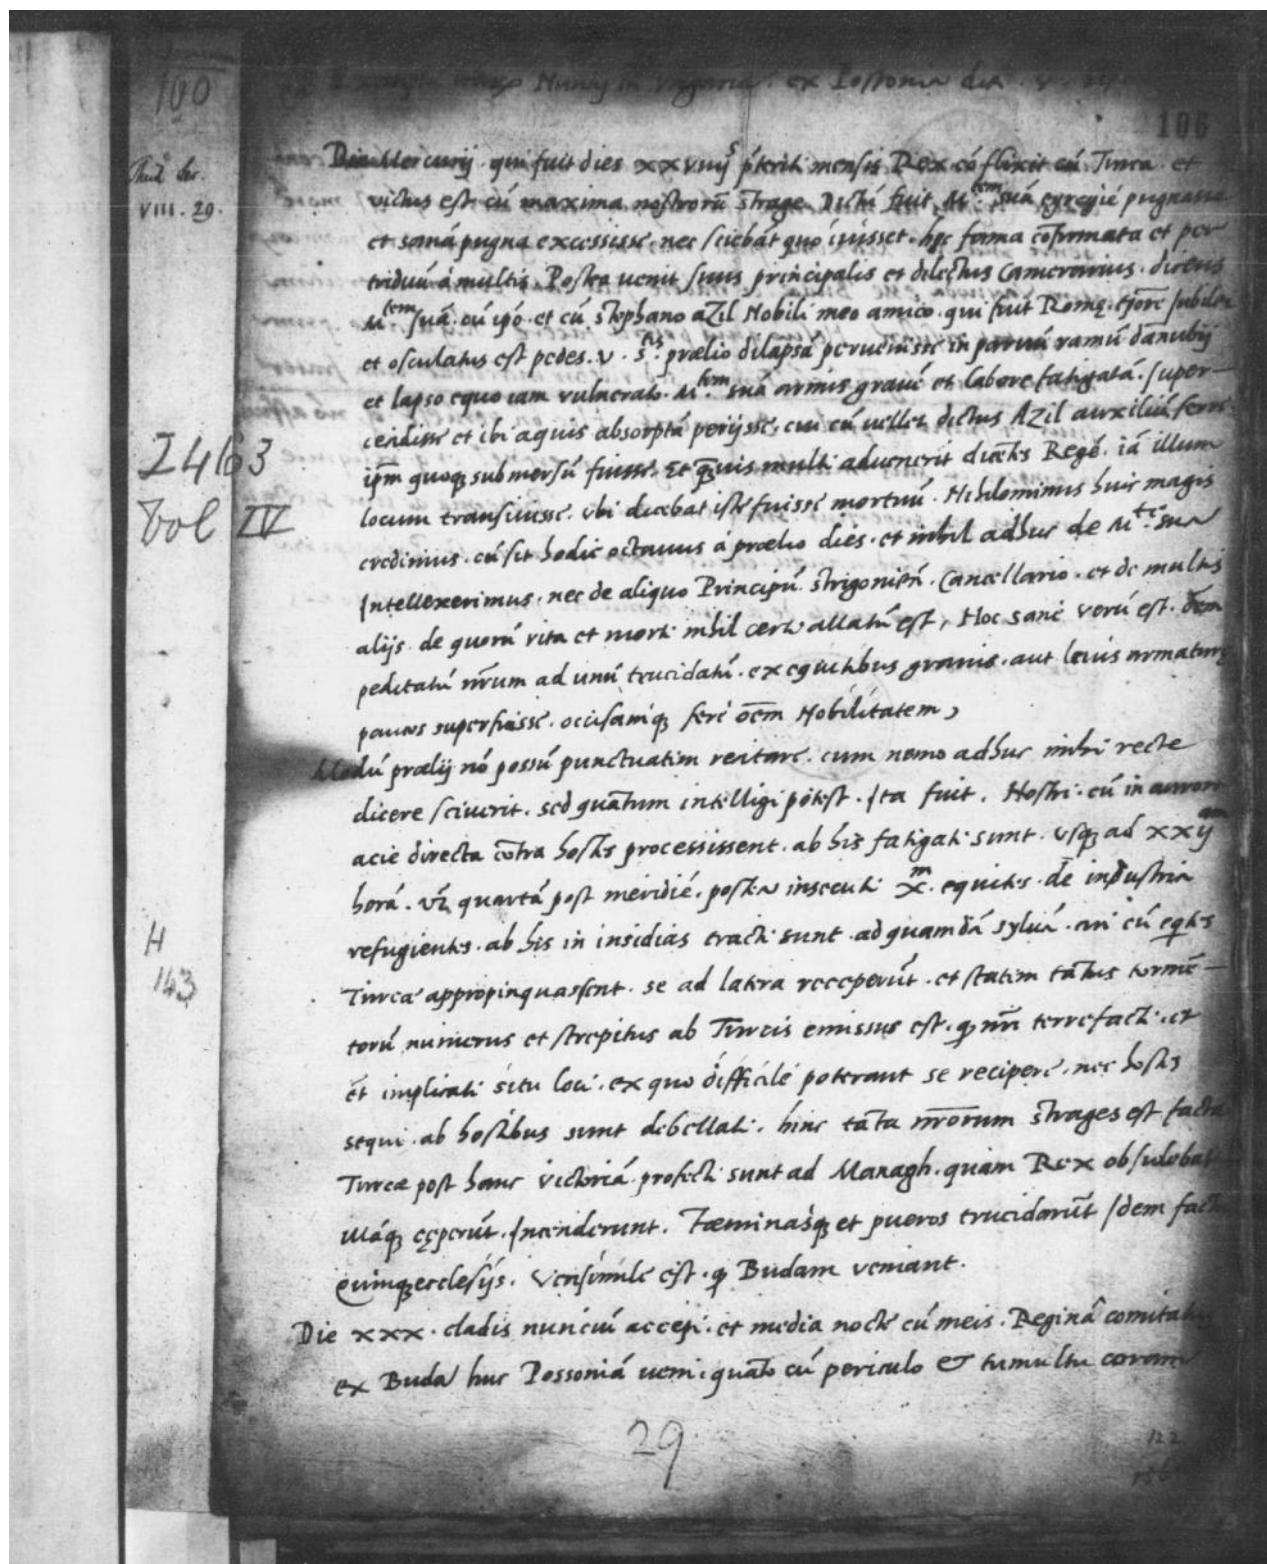 100
Nuncij in Vngaria. ex Possonia die. v.
106
VIII. 29.
Die Mercurij. qui fuit dies xxviiij p̃teriti mensis Rex cõflixit cũ Turca. et
victus est cũ maxima nostrorũ strage. Dictũ fuit M.tem suã egregiè pugnasse
et sanã pugna excessisse. nec sciebãt quo iuisset. hęc fama cõfirmata et per
triduũ à multis. Postea uenit suus principalis et dilectus Camerarius. dicens
M.tem suã. cũ ipõ. et cũ Stephano aZil Nobili meo amico. qui fuit Romę.
et osculatus est pedes. v. s.tis. prælio dilapsã peruenisse in paruũ ramũ danubij
et lapso equo iam vulnerato. M.tem suã armis graue et labore fatigatã. super-
cecidisse et ibi aquis absorptã perijsse. cui cũ vellet dictus AZil auxiliũ ferre
ip̃m quoq; submersũ fuisse. Et q̃uis multi aduenerit dicẽtes Regẽ. iã illum
locum transiuisse. vbi dicebat iste fuisse mortuũ. Nihilominus huic magis
credimus. cũ sit hodie octauus à prælio dies. et nihil adhuc de M.te sua
Intellexerimus. nec de aliquo Principũ. Strigonieñ. Cancellario. et de multis
alijs de quorũ vita et morte nihil certi allatũ est, Hoc sane verũ est. õem
peditatũ nr̃um ad unũ trucidatũ. ex equitibus grauis. aut leuis armaturę
paucos superfuisse. occisamq; fere õem Nobilitatem,
Modũ prælij nõ possũ punctuatim recitare. cum nemo adhuc mihi recte
dicere sciuerit. sed quantum intelligi põtest. Ita fuit. Nostri. cũ in aurora
acie directa cõtra hostes processissent. ab his fatigati sunt. vsq; ad xxijam
horã. vz quartã post meridiẽ. postea insecuti x.m equites. de industria
refugientes. ab his in insidias tracti sunt. ad quamdã syluã. cui cũ eq̃tes
Turcæ appropinquassent. se ad latera receperũt. et statim tãtus tormẽ-
torũ numerus et strepitus ab Turcis emissus est. q nr̃i terrefacti. et
et implicati situ loci. ex quo difficile poterant se recipere. nec hostes
sequi. ab hostibus sunt debellati. hinc tãta nr̃orum strages est facta
Turcæ post hanc victoriã profecti sunt ad Managh. quam Rex obsidebat
illãq; cęperũt. Incenderunt. Fæminasq; et pueros trucidarũt Idem
Quinq;ecclesijs. Verisimile est. q Budam veniant.
Die xxx. cladis nunciũ accepi. et media nocte cũ meis. Reginã comitatus
ex Buda huc Possoniã ueni. quãto cũ periculo & tumultu coram
2463
Vol IV
H
143
29
122